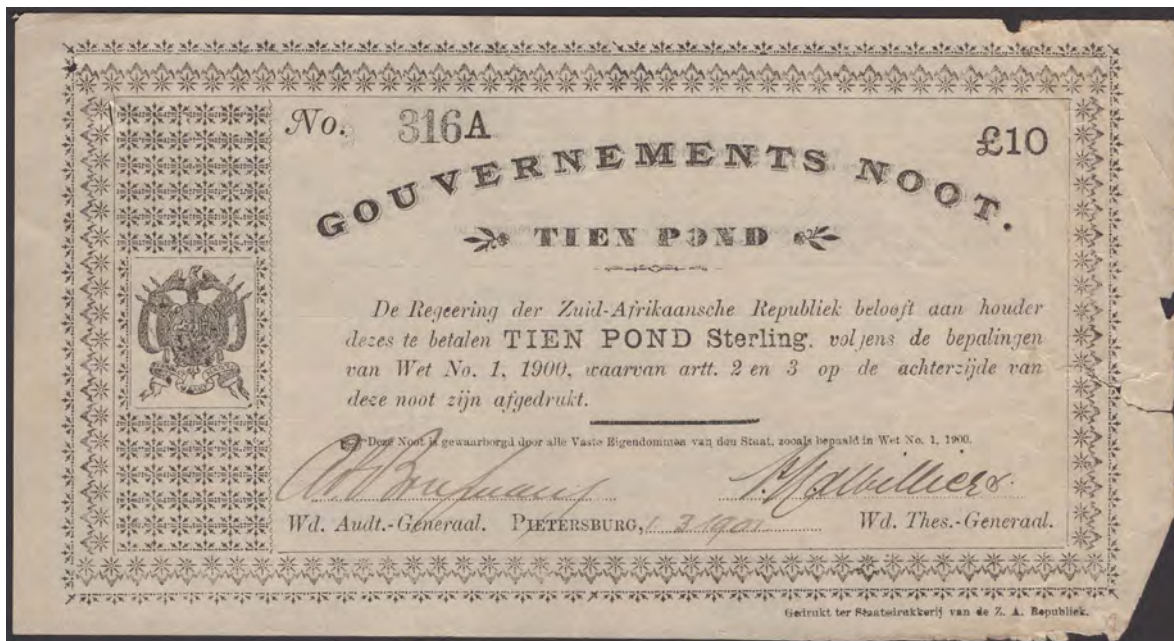 No. 316A
£10
GOUVERNEMENTS NOOT.
TIEN POND
De Regeering der Zuid-Afrikaansche Republiek belooft aan houder
dezes te betalen TIEN POND Sterling, volgens de bepalingen
van Wet No. 1, 1900, waarvan artt. 2 en 3 op de achterzijde van
deze noot zijn afgedrukt.
Deze Noot is gewaarborgd door alle Vaste Eigendommen van den Staat, zooals bepaald in Wet No. 1, 1900.
Wd. Audt.-Generaal. PIETERSBURG, 1.3.1901 Wd. Thes.-Generaal.
Gedrukt ter Staatsdrukkerij van de Z. A. Republiek.